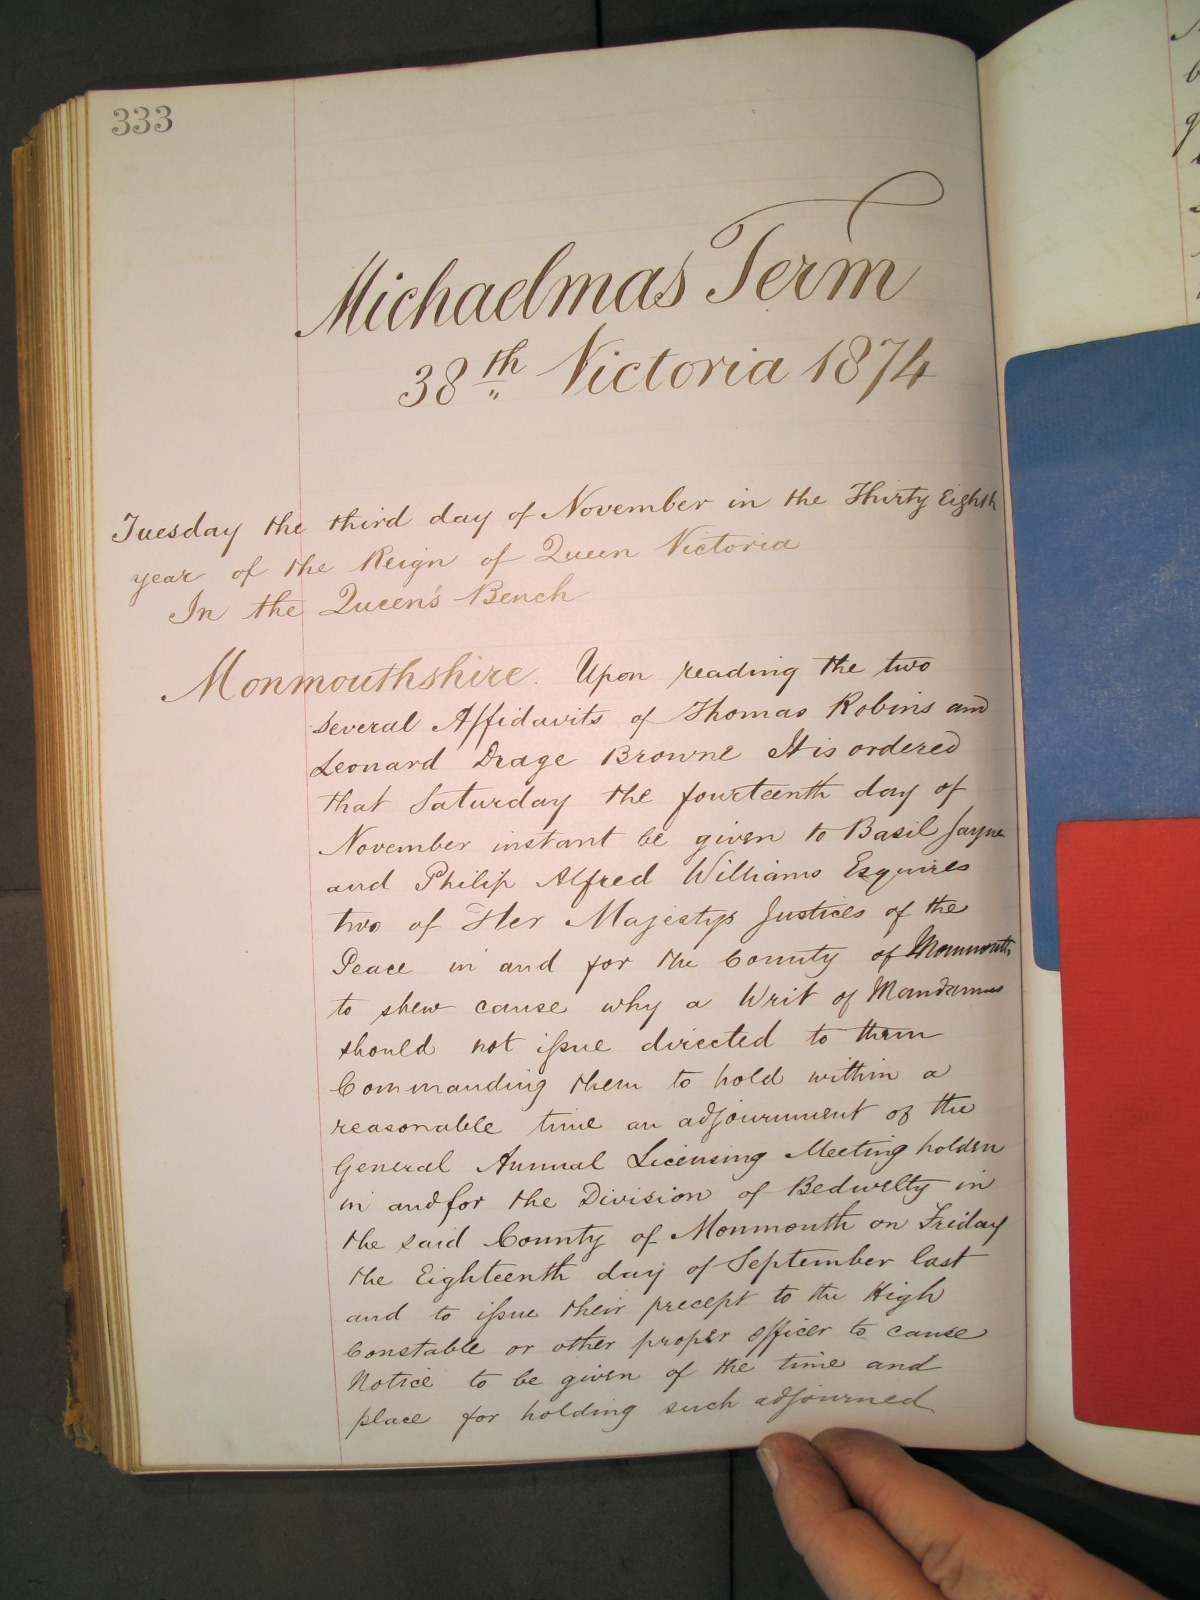 333
Michaelmas Term
38th Victoria 1874
Tuesday the third day of November in the Thirty Eighth
year of the Reign of Queen Victoria
In the Queen's Bench
Monmouthshire. Upon reading the two
several Affidavits of Thomas Robins and
Leonard Drage Browne It is ordered
that Saturday the fourteenth day of
November instant be given to Basil Jayne
and Philip Alfred Williams Esquires
two of Her Majestys Justices of the
Peace in and for the County of Monmouth
to shew cause why a Writ of Mandamus
should not issue directed to them
Commanding them to hold within a
reasonable time an adjournment of the
General Annual Licensing Meeting holden
in and for the Division of Bedwelty in
the said County of Monmouth on Friday
the Eighteenth day of September last
and to issue their precept to the High
Constable or other proper officer to cause
Notice to be given of the time and
place for holding such adjourned